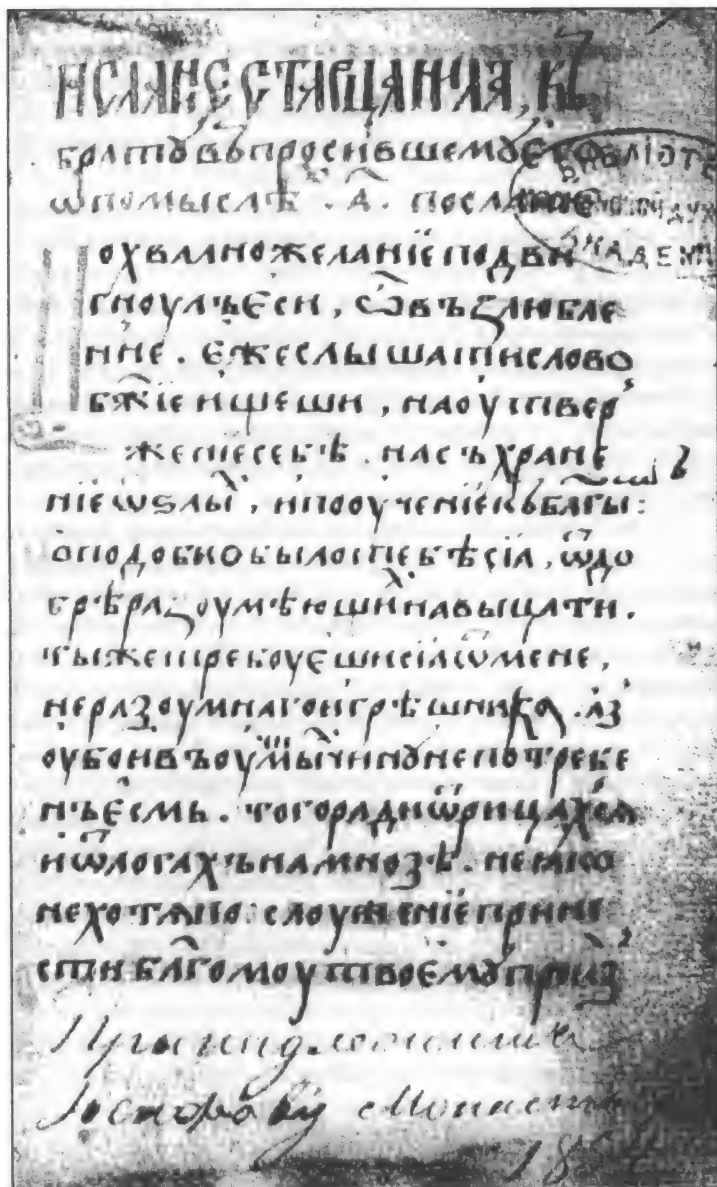 ПОСЛАНЇЕ СТАРЦА НИЛА, КЪ
братꙋ въпросившемꙋ его
ѿ помыслѣⷯ . а҃ . посланїе
Похвално желанїе подви
гноулъ єси , ѽ възлюбле
нне . єже слышати слово
бж҃їе ищеши , на оутвер
женїе себѣ . на съхране
нїе ѿ ѕлыⷯ , и пооученїе къ бл҃гыⷨ :
Подобно было тебѣ сїа , ѿ до
брѣ разоумѣющиⷯ навыцати .
ты же требоуєши сїа ѿ мене ,
неразоумнаго и грѣшника . аз
оубо и въ оу҆чиⷨ чинꙋ не потребе
нъ єсмь . того ради ѿрицахсѧ
и ѿлагахъ на мнозѣ . не ꙗко
не хотѧ по слоуженїе прине
сти бл҃гомоу твоємꙋ произ
БИБЛІОТЕ
ДУХ
АКАДЕМ